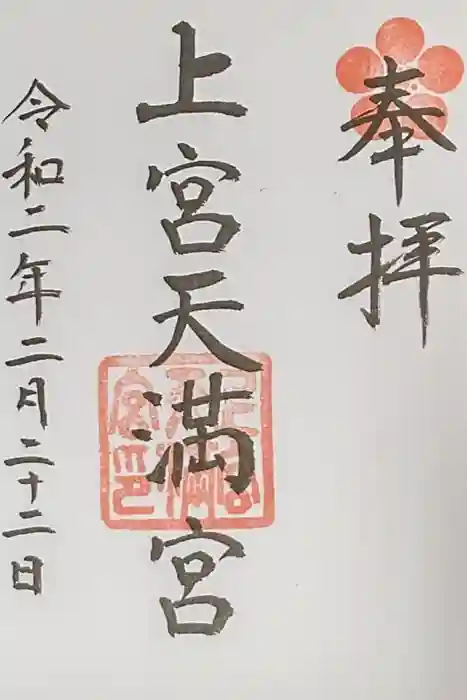 奉拝
上宮天満宮
令和二年二月二十二日